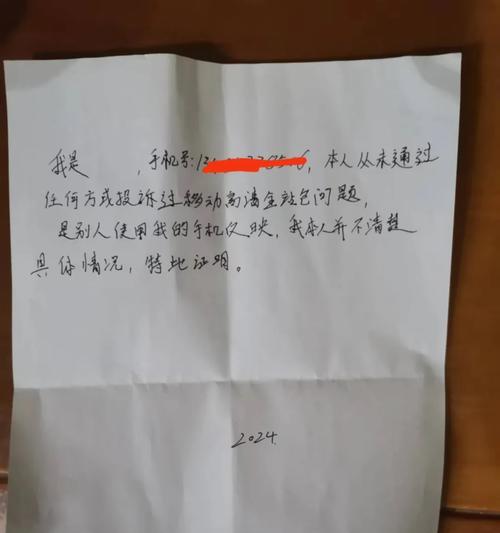 我是 ，手机号：，本人从未通过
任何方式投诉过移动高清全站包问题，
是别人使用我的手机反映，我本人并不清楚
具体情况，特此证明。
2024